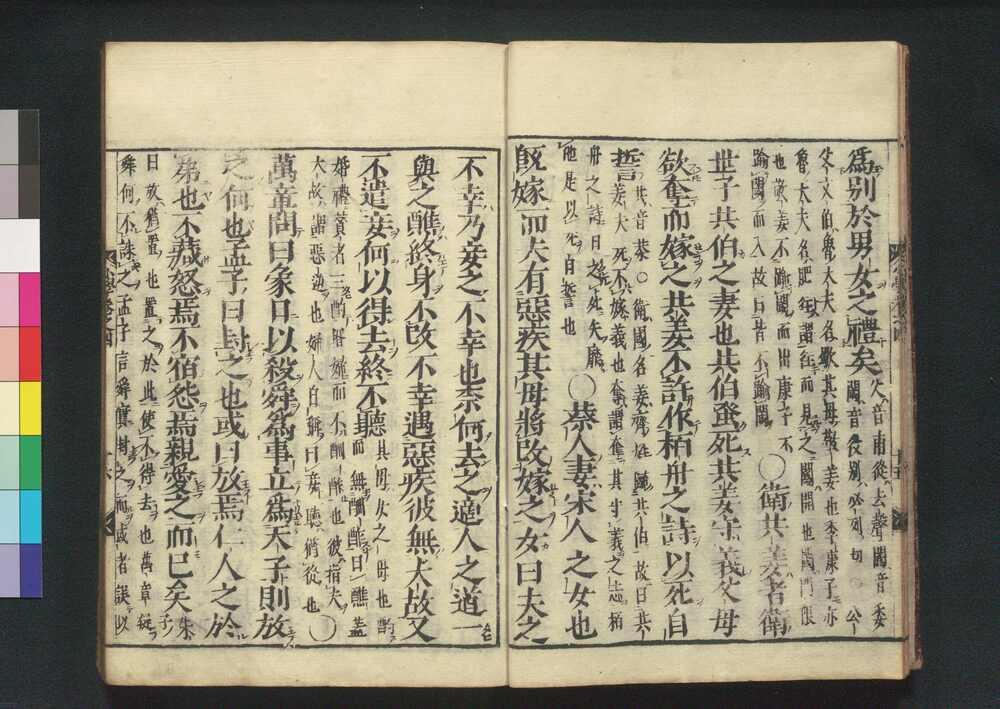 爲別於男女之禮矣父音甫從去聲闖音委
閾音役別必列切公
父文伯魯大夫名歜其母敬姜也季康子亦
魯大夫名肥
也敬姜不踰閾而出康子不
踰閾而入故曰皆不踰閾
○衛共姜者衛
世子共伯之妻也共伯蚤死共姜守義父母
欲奪而嫁之共姜不許作柏舟之詩以死自
誓共音恭○衛國名姜齊姓
夫死不嫁義也奪謂奪其守義之志柏
舟之詩曰之死矢靡
他是以死自誓也
○蔡人妻宋人之女也
旣嫁而夫有惡疾其母將改嫁之女曰夫之
不幸乃妾之不幸也柰何去之適人之道一
與之醮終身不改不幸遇惡疾彼無大故又
不遣妾何以得去終不聽其母女之母也
而無酬酢曰醮蓋
婚禮贊者三酌壻婦而不酬酢也彼指夫
大故謂惡逆也婦人自稱曰妾聽猶從也○
萬章問曰象日以殺舜爲事立爲天子則放
之何也孟子曰封之也或曰放焉仁人之於
弟也不藏怒焉不宿怨焉親愛之而已矣朱子
曰放猶置也置之於此使不得去也萬章疑
舜何不誅之孟子言舜實封之而或者誤以